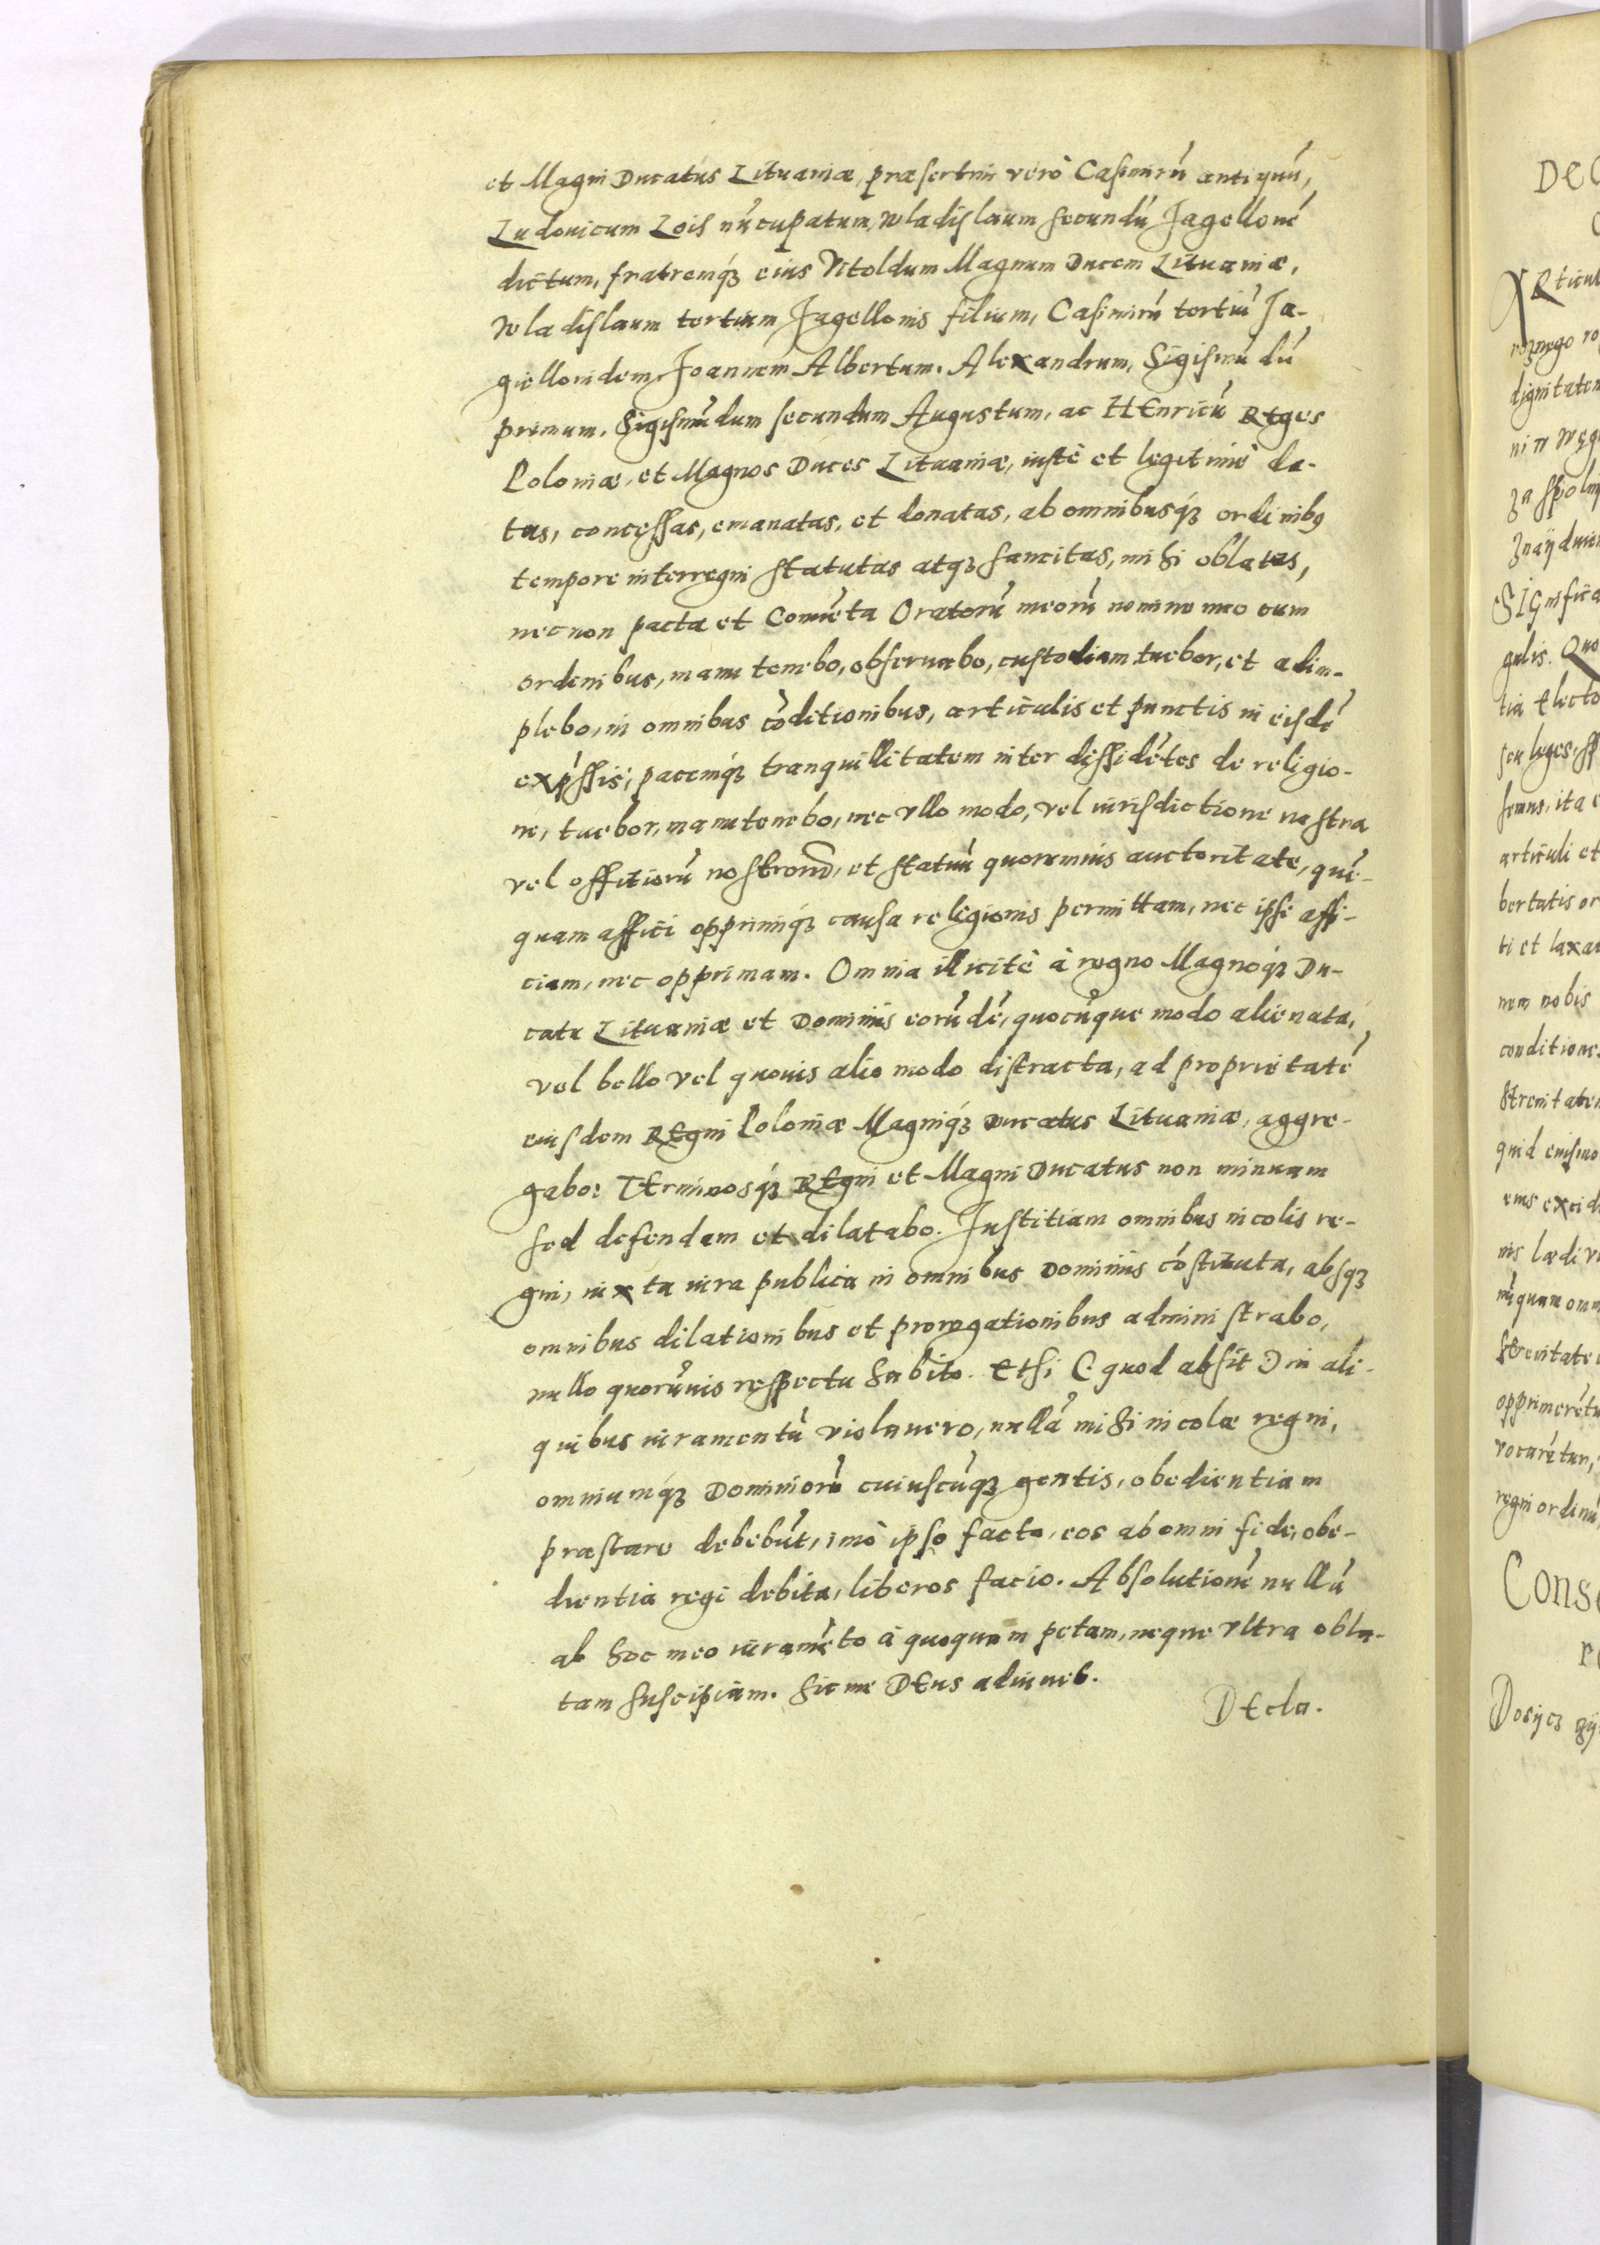 et Magni Ducatus Lituaniæ, præsertim verò Casimirū antiquū,
Ludouicum Lois nūcupatum, Wladislaum secundū Jagellonē
dictum, fratremq́ꝫ eius Vitoldum Magnum Ducem Lituaniæ,
Wladislaum tertium Jagellonis filium, Casimirū tertiū Ja-
giellonidem, Joannem Albertum. Alexandrum, Sigismūdū
primum. Sigismūdum secundum Augustum, ac HEnricū REges
Poloniæ, et Magnos Duces Lituaniæ, iustè et legitimè da-
tas, concessas, emanatas, et donatas, ab omnibusq́ꝫ ordinibꝰ
tempore interregni statutas atqꝫ sancitas, mihi oblatas,
nec non pacta et Conuēta Oratorū meorū nomine meo cum
ordinibus, manu tenebo, obseruabo, custodiam tuebor, et adim-
plebo, in omnibus cōditionibus, articulis et punctis in eisdē
exp̄ssis; pacemq́ꝫ tranquillitatem inter dissidētes de religio-
ne, tuebor, manutenebo, nec vllo modo, vel iurisdictione nostra
vel offitiorū nostrorū, et statuū quorumuis auctoritate, quē-
quam affici opprimiq́ꝫ causa religionis permittam, nec ipse affi-
ciam, nec opprimam. Omnia illicitè à regno Magnoq́ꝫ Du-
catu Lituaniæ et Dominiis eorūdē, quocūque modo alienata,
vel bello vel quouis alio modo distracta, ad proprietatē
eiusdem REgni Poloniæ Magniq́ꝫ Ducatus Lituaniæ, aggre-
gabo: TErminosq́ꝫ REgni et Magni Ducatus non minuam
sed defendam et dilatabo. Justitiam omnibus incolis re-
gni, iuxta iura publica in omnibus Dominiis cōstituta, absqꝫ
omnibus dilationibus et prorogationibus administrabo,
nullo quorūuis respectu habito. Etsi (quod absit) in ali-
quibus iuramentū violauero, nullā mihi incolæ regni,
omniumq́ꝫ Dominiorū cuiuscūqꝫ gentis, obedientiam
præstare debebūt, imò ipso facto, eos ab omni fide, obe-
dientia regi debita, liberos facio. Absolutionē nullā
ab hoc meo iuramēto à quoquam petam, neque vltra obla-
tam suscipiam. Sic me DEus adiuuet.
DEcla.